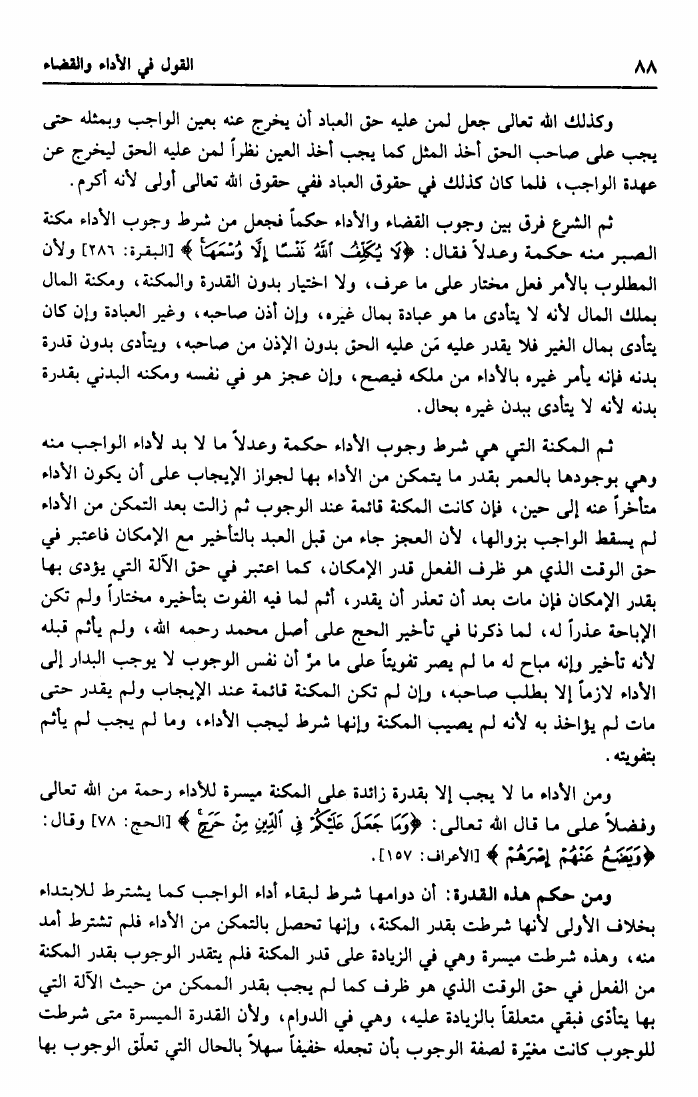 ٨٨
القول في الأداء والقضاء
وكذلك الله تعالى جعل لمن عليه حق العباد أن يخرج عنه بعين الواجب وبمثله حتى
يجب على صاحب الحق أخذ المثل كما يجب أخذ العين نظراً لمن عليه الحق ليخرج عن
عهدة الواجب، فلما كان كذلك في حقوق العباد ففي حقوق الله تعالى أولى لأنه أكرم.
ثم الشرع فرق بين وجوب القضاء والأداء حكماً فجعل من شرط وجوب الأداء مكنة
الصبر منه حكمة وعدلاً فقال: ﴿لَا يُكَلِّفُ ٱللَّهُ نَفْسًا إِلَّا وُسْعَهَا﴾ [البقرة: ٢٨٦] ولأن
المطلوب بالأمر فعل مختار على ما عرف، ولا اختيار بدون القدرة والمكنة، ومكنة المال
بملك المال لأنه لا يتأدى ما هو عبادة بمال غيره، وإن أذن صاحبه، وغير العبادة وإن كان
يتأدى بمال الغير فلا يقدر عليه مَن عليه الحق بدون الإذن من صاحبه، ويتأدى بدون قدرة
بدنه فإنه يأمر غيره بالأداء من ملكه فيصح، وإن عجز هو في نفسه ومكنه البدني بقدرة
بدنه لأنه لا يتأدى ببدن غيره بحال.
ثم المكنة التي هي شرط وجوب الأداء حكمة وعدلاً ما لا بد لأداء الواجب منه
وهي بوجودها بالعمر بقدر ما يتمكن من الأداء بها لجواز الإيجاب على أن يكون الأداء
متأخراً عنه إلى حين، فإن كانت المكنة قائمة عند الوجوب ثم زالت بعد التمكن من الأداء
لم يسقط الواجب بزوالها، لأن العجز جاء من قبل العبد بالتأخير مع الإمكان فاعتبر في
حق الوقت الذي هو ظرف الفعل قدر الإمكان، كما اعتبر في حق الآلة التي يؤدى بها
بقدر الإمكان فإن مات بعد أن تعذر أن يقدر، أثم لما فيه الفوت بتأخيره مختاراً ولم تكن
الإباحة عذراً له، لما ذكرنا في تأخير الحج على أصل محمد رحمه الله، ولم يأثم قبله
لأنه تأخير وإنه مباح له ما لم يصر تفويتاً على ما مرّ أن نفس الوجوب لا يوجب البدار إلى
الأداء لازماً إلا بطلب صاحبه، وإن لم تكن المكنة قائمة عند الإيجاب ولم يقدر حتى
مات لم يؤاخذ به لأنه لم يصيب المكنة وإنها شرط ليجب الأداء، وما لم يجب لم يأثم
بتفويته.
ومن الأداء ما لا يجب إلا بقدرة زائدة على المكنة ميسرة للأداء رحمة من الله تعالى
وفضلاً على ما قال الله تعالى: ﴿وَمَا جَعَلَ عَلَيْكُمْ فِي ٱلدِّينِ مِنْ حَرَجٍ﴾ [الحج: ٧٨] وقال:
﴿وَيَضَعُ عَنْهُمْ إِصْرَهُمْ﴾ [الأعراف: ١٥٧].
ومن حكم هذه القدرة: أن دوامها شرط لبقاء أداء الواجب كما يشترط للابتداء
بخلاف الأولى لأنها شرطت بقدر المكنة، وإنها تحصل بالتمكن من الأداء فلم تشترط أمد
منه، وهذه شرطت ميسرة وهي في الزيادة على قدر المكنة فلم يتقدر الوجوب بقدر المكنة
من الفعل في حق الوقت الذي هو ظرف كما لم يجب بقدر الممكن من حيث الآلة التي
بها يتأدّى فبقي متعلقاً بالزيادة عليه، وهي في الدوام، ولأن القدرة الميسرة متى شرطت
للوجوب كانت مغيّرة لصفة الوجوب بأن تجعله خفيفاً سهلاً بالحال التي تعلّق الوجوب بها